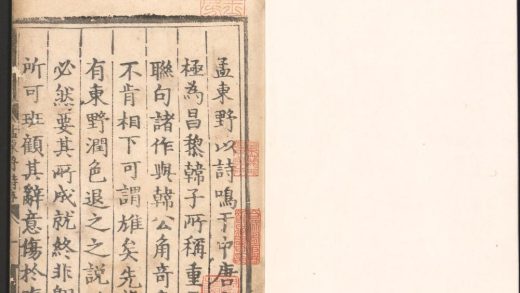 孟東野以詩鳴于中唐
極為昌黎韓子所稱重
聯句諸作與韓公角奇
不肯相下可謂雄矣先
有東野潤色退之之說
必然要其所成就終非
所可班顧其辭意傷於